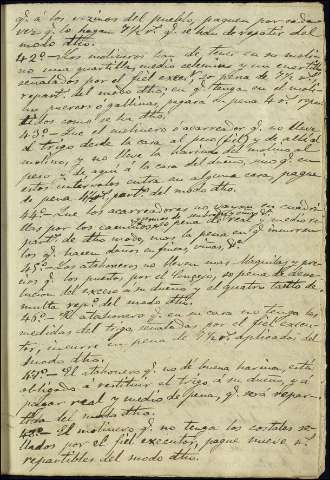 q.e á los vezinos del pueblo, paguen por cada
vez q.e lo hagan 7½ r.s q.e se han de repartir del
modo dho.
42.º - Los molineros han de tener en su molino
una quartilla, medio celemin y un quartillo
señalados por el fiel exec.r so pena de 7½ r.s
repart.s del modo dho; en q.e tenga en el molino
puercos ó gallinas, pagará de pena 4 r.s repar
tidos como se ha dho.
43.º - Que el molinero ó acarreador q.e no lleve
el trigo desde la casa al peso (fiel) y de allí al
molino, y no lleve la harina del molino al
peso y de aquí á la casa del dueño, sino q.e en
estos intervalos entra en alguna casa, pague
de pena part.s del modo dho.
44.º - Que los acarreadores no vayan en cuadri
llas por los caminos so pena de real y medio re
part.s de dho modo, mas la pena en q.e incurren
los q.e hacen daños en fincas, viñas, &.a
45.º - Los atahoneros no lleven mas maquilas y pre
cios q.e los puestos por el Concejo, so pena de devo
lucion del exceso á su dueño y el quatro tanto de
multa rep.s del modo dho.
46.º - El atahonero q.e en su casa no tenga las
medidas del trigo, señaladas por el fiel execu
tor, incurre en pena de 7½ r.s aplicados del
modo dho.
47.º - El atahonero q.e no dé buena harina, está
obligado á restituir el trigo á su dueño, y á
pagar real y medio de pena, q.e será repar
tida del modo dho.
48.º - El molinero q.e no tenga los costales se
llados por el fiel executor, pague nueve r.s
repartibles del modo dho.